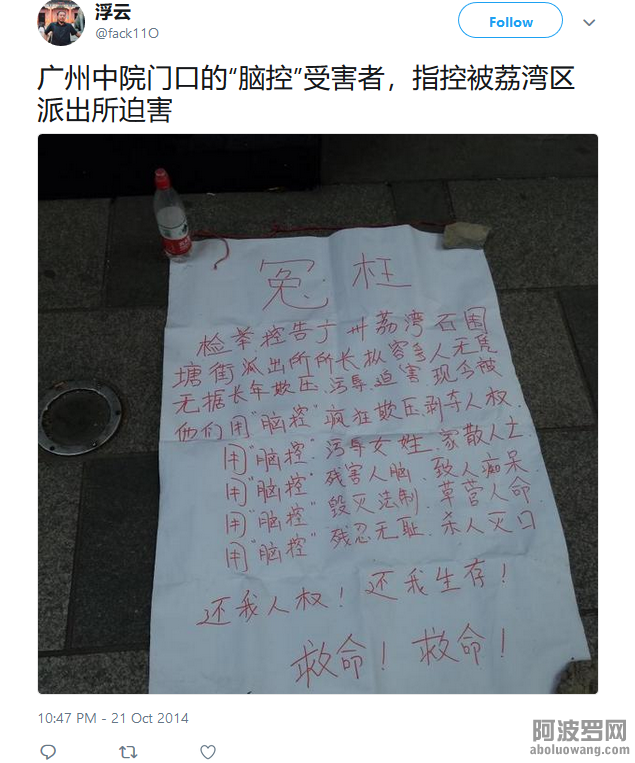 浮云
@fack11O
Follow
广州中院门口的“脑控”受害者，指控被荔湾区
派出所迫害
冤枉
检举控告广卅荔湾石围
塘街派出所所长纵容害人无凭
无据长年欺压.污辱迫害.现今被
他们用"脑控"疯狂欺压剥夺人权.
用"脑控"污辱女姓.家散人亡
用"脑控"残害人脑.致人痴呆
用"脑控"毁灭法制.草营人命
用"脑控"残忍无耻.杀人灭口
还我人权！还我生存！
救命！救命！
10:47 PM - 21 Oct 2014
阿波罗网
aboluowang.com